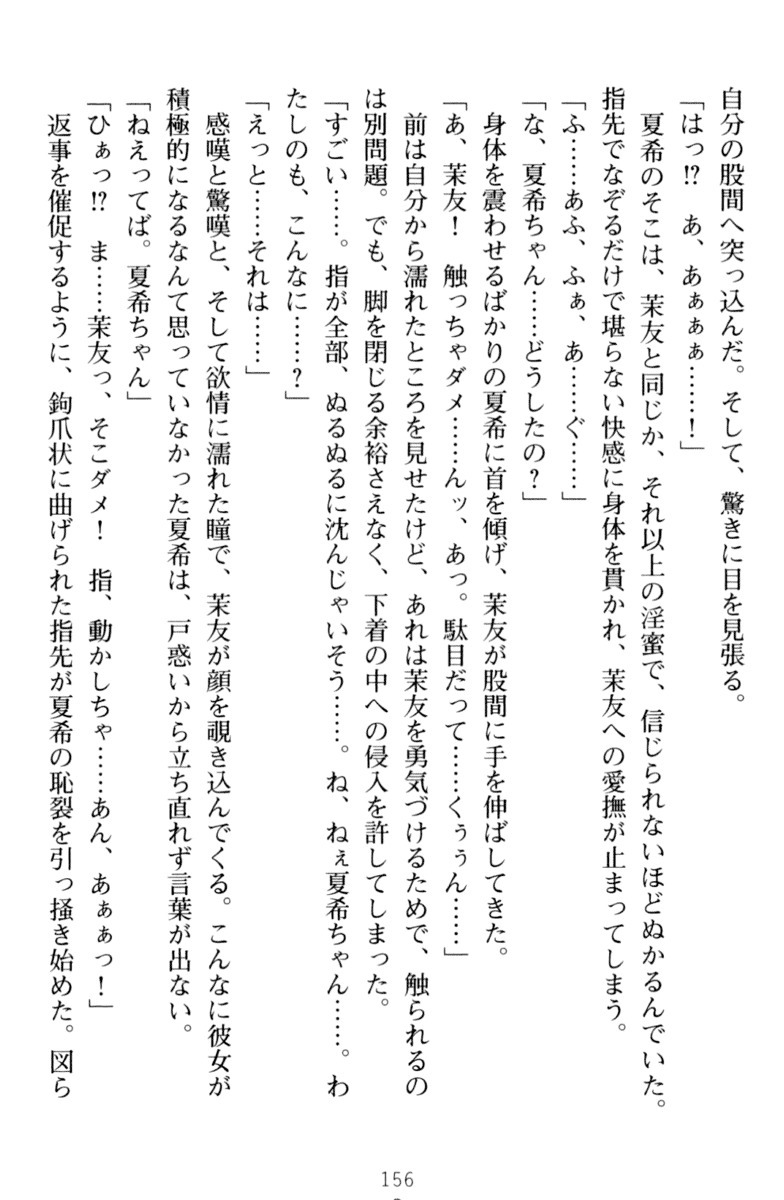 自分の股間へ突っ込んだ。そして、驚きに目を見張る。
「はっ!?　あ、あぁぁぁ……！」
　夏希のそこは、茉友と同じか、それ以上の淫蜜で、信じられないほどぬかるんでいた。
指先でなぞるだけで堪らない快感に身体を貫かれ、茉友への愛撫が止まってしまう。
「ふ……あふ、ふぁ、あ……ぐ……」
「な、夏希ちゃん……どうしたの？」
　身体を震わせるばかりの夏希に首を傾げ、茉友が股間に手を伸ばしてきた。
「あ、茉友！　触っちゃダメ……んッ、あっ。駄目だって……くぅぅん……」
　前は自分から濡れたところを見せたけど、あれは茉友を勇気づけるためで、触られるの
は別問題。でも、脚を閉じる余裕さえなく、下着の中への侵入を許してしまった。
「すごい……。指が全部、ぬるぬるに沈んじゃいそう……。ね、ねぇ夏希ちゃん……。わ
たしのも、こんなに……？」
「えっと……それは……」
　感嘆と驚嘆と、そして欲情に濡れた瞳で、茉友が顔を覗き込んでくる。こんなに彼女が
積極的になるなんて思っていなかった夏希は、戸惑いから立ち直れず言葉が出ない。
「ねえってば。夏希ちゃん」
「ひぁっ!?　ま……茉友っ、そこダメ！　指、動かしちゃ……あん、あぁぁっ！」
　返事を催促するように、鉤爪状に曲げられた指先が夏希の恥裂を引っ掻き始めた。図ら
156